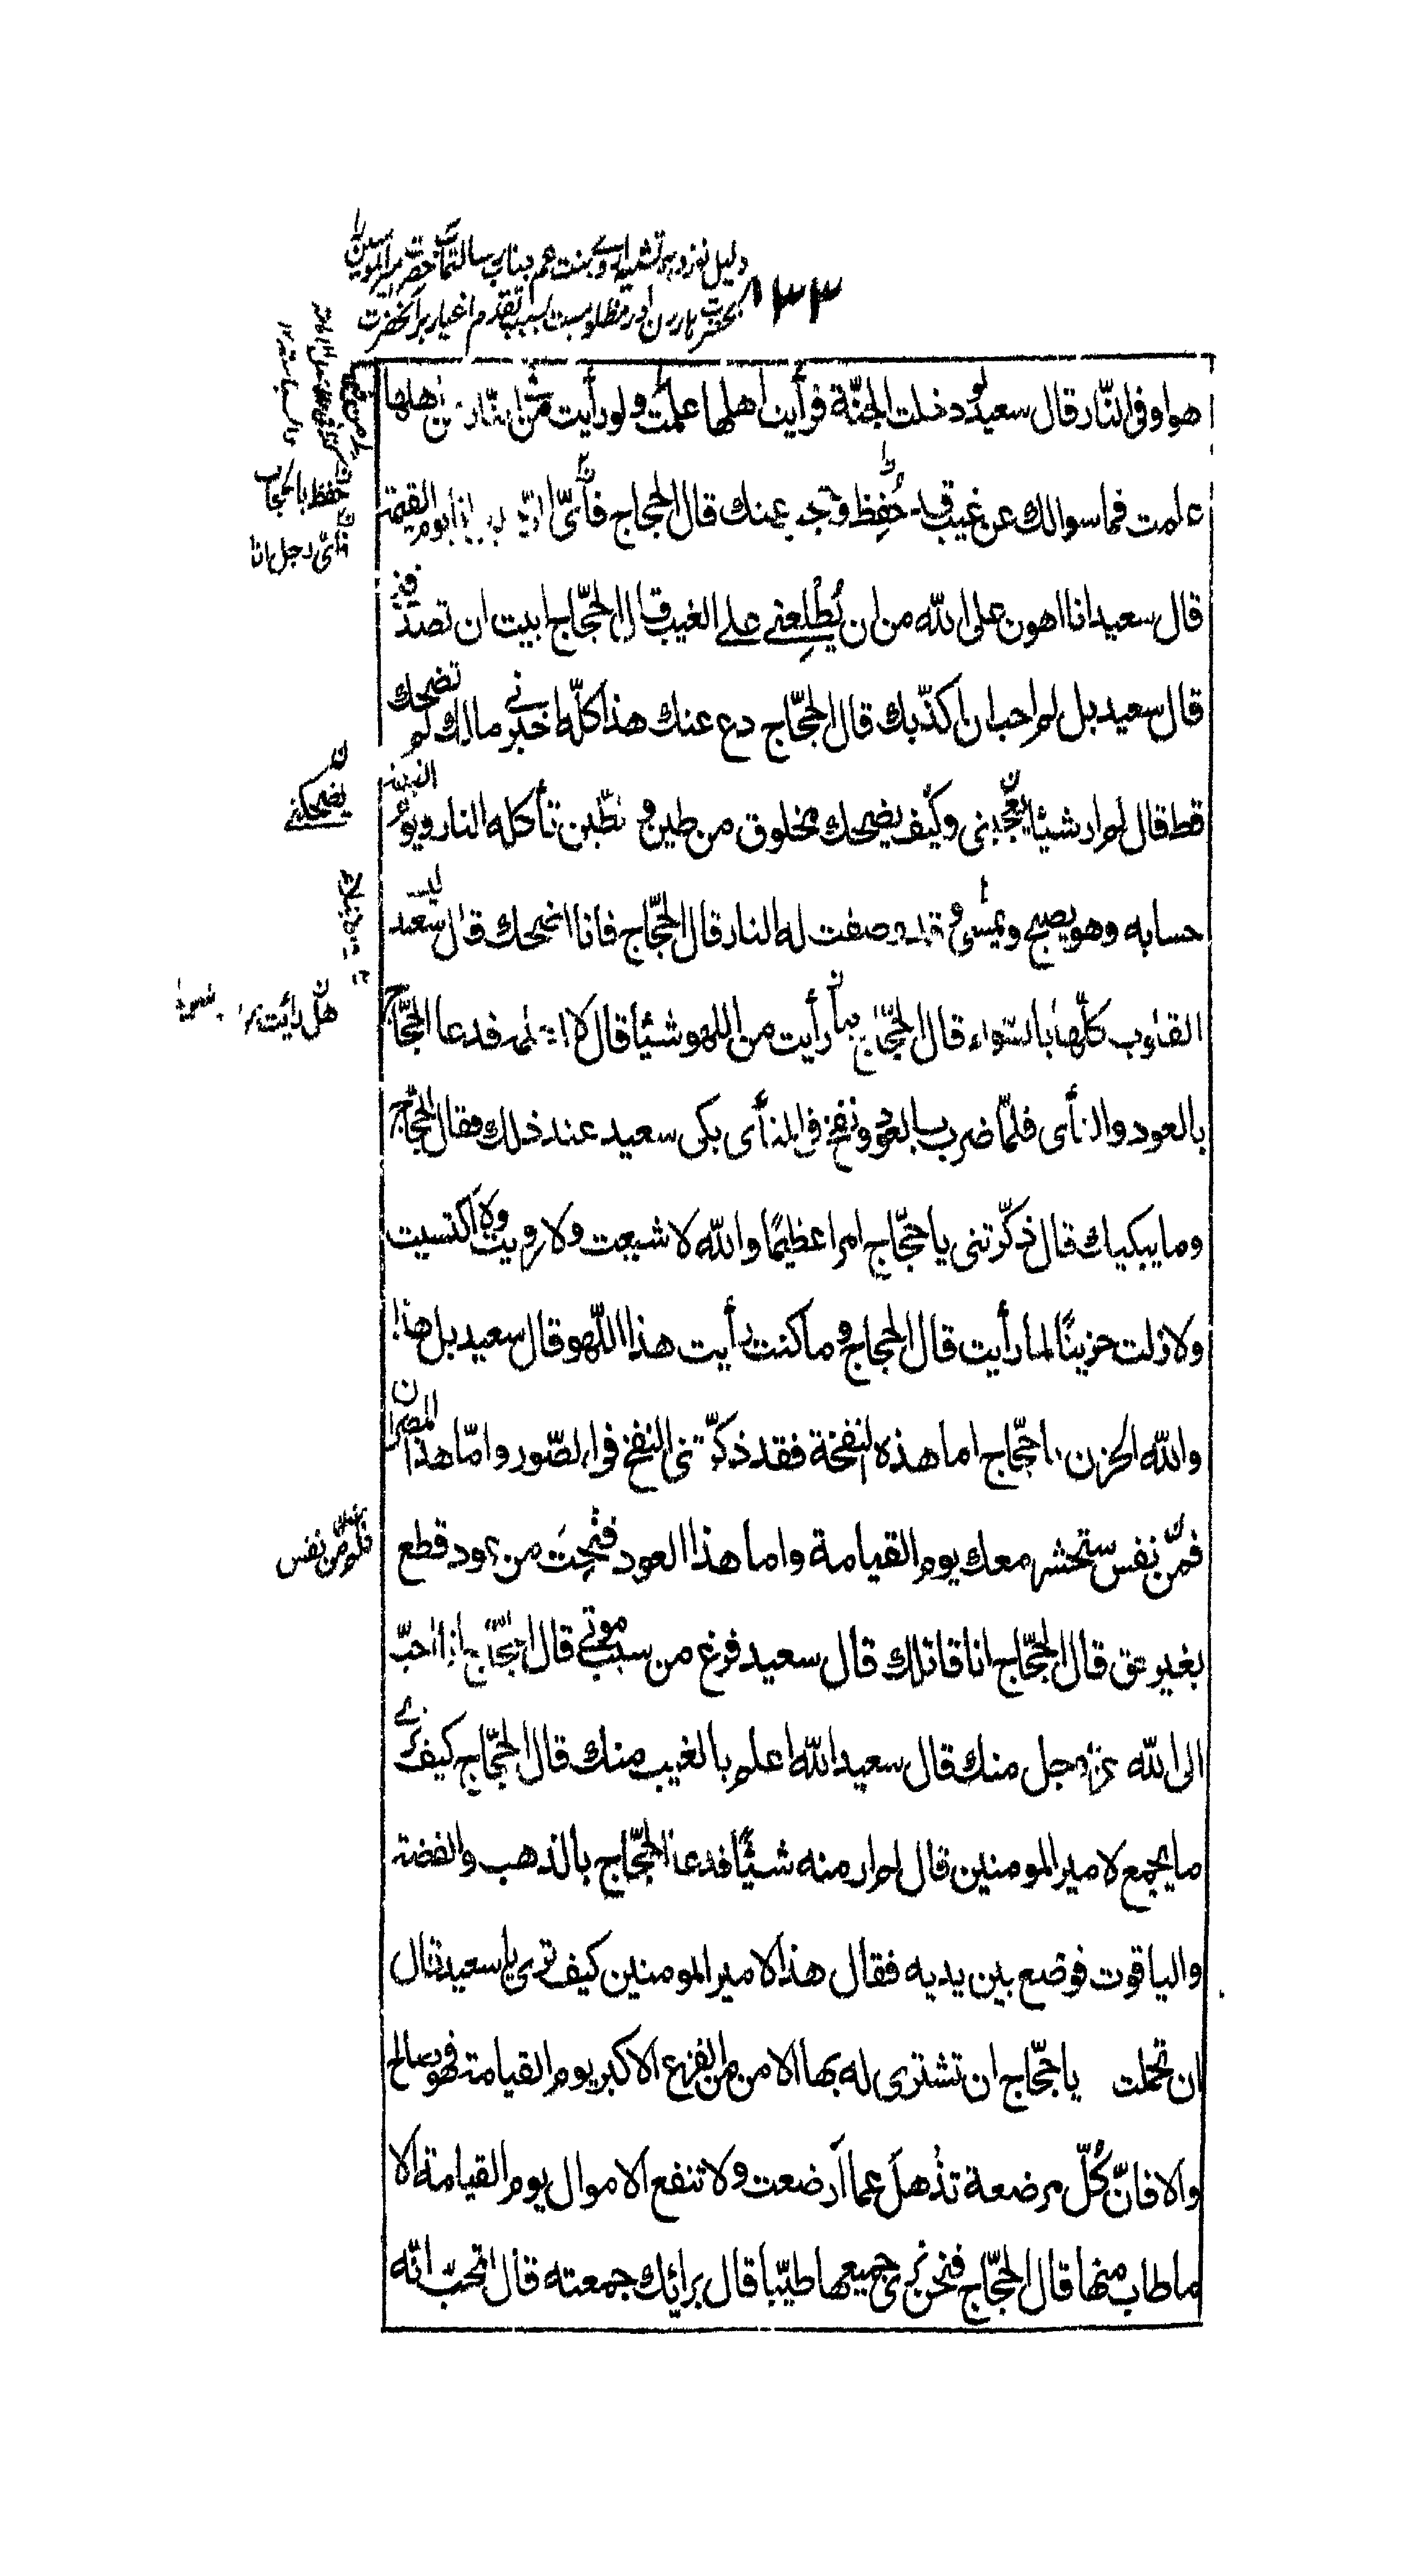 ١٣٣
هو او فى النّار قال سعيد لو دخلت الجنّة فرأيت اهلها علمت ولو رأيت من فى النّار من هلها
علمت فما سوالك عن غيب قد حُفِظ وحجب عنك قال الحجاج فأىّ انا يوم القيمة
قال سعيد انا اهون على الله من ان يُطْلِعنے علے الغيب قال الحجّاج ابيت ان تصدّقنى
قال سعيد بل لم احب ان اكذّبك قال الحجّاج دع عنك هذا كلّه اخبرنے مالك لم تضحك
قط قال لم ار شيئا يعجبنى وكيف يضحك مخلوق من طين و تأكله النار ويوم
حسابه وهو يصبح ويمسى و صفت له النار قال الحجّاج فانا اضحك قال سعيد ليست
القلوب كلّها بالسّواء قال الحجّاج رأيت من اللهو شيئا قال لا فدعا الحجّاج
بالعود والنأى فلمّا ضرب بالعود ونفخ فى المنأى بكى سعيد عند ذلك فقال الحجّاج
وما يبكيك قال ذكّرتنى يا حجّاج امرا عظيمًا والله لا شبعت ولا رويت ولا اكتسيت
ولا زلت حزينًا لما رأيت قال الحجاج و ما كنت رأيت هذا اللّهو قال سعيد بل هذا
والله الحزن يا حجّاج اما هذه النفخة فقد ذكّرتنى النفخ فى الصّور وامّا هذا المصران
فمن نفس ستحشر معك يوم القيامة واما هذا العود فنُحِتَ من عود قطع
بغير حق قال الحجّاج انا قاتلك قال سعيد فرغ من سبب موتے قال الحجّاج انا احبّ
الى الله عز وجل منك قال سعيد الله اعلم بالغيب منك قال الحجّاج كيف ترے
ما يجمع لامير المومنين قال لم ار منه شيئًا فدعا الحجّاج بالذهب والفضة
والياقوت فوضع بين يديه فقال هذا لامير المومنين كيف ترى يا سعيد قال
ان تحملت يا حجّاج ان تشترى له بها الامن من الفزع الاكبر يوم القيامة فهو صالح
والا فانّ كُلّ مرضعة تذهل عما أرضعت ولا تنفع الاموال يوم القيامة الا
ما طاب منها قال الحجّاج فنحن نرى جميعها طيّبا قال برائك جمعته قال اتحبّ انّه
حفظ بالحجاب
فاىّ رجل انا
يضحكنے
هل رأيت
من نفس